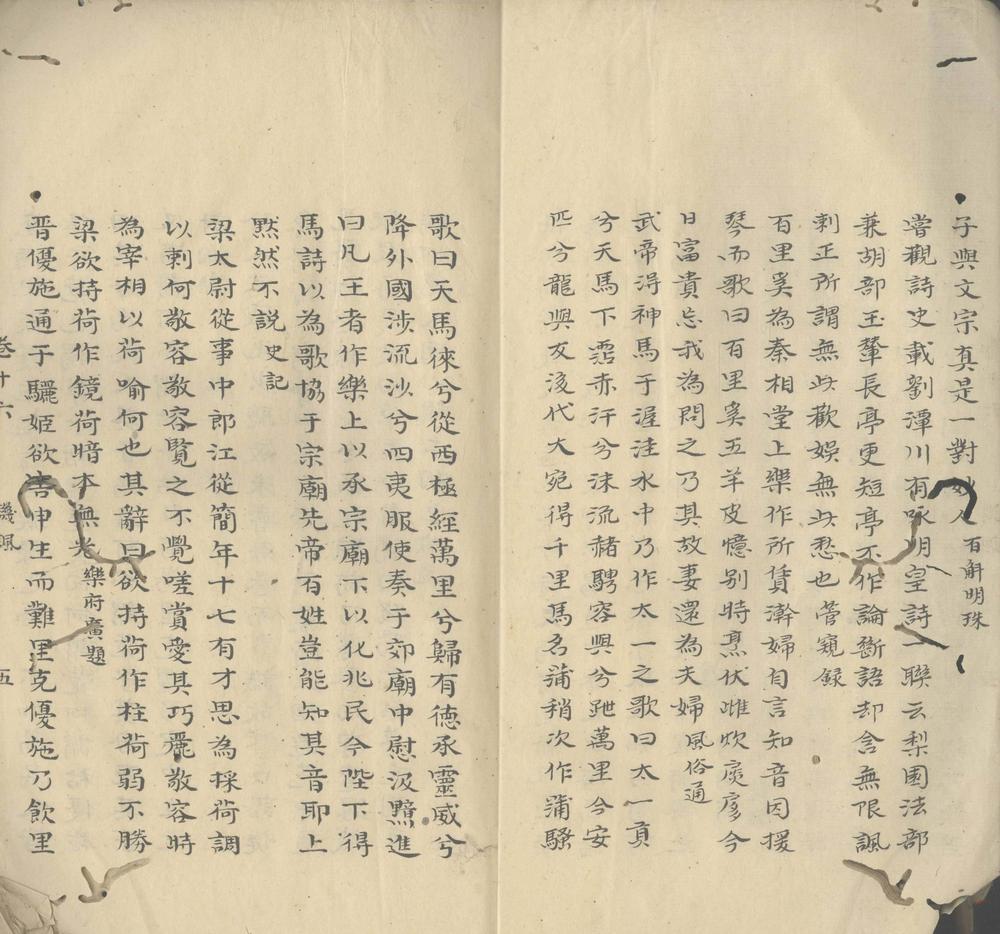 子與文宗真是一對妙人 百斛明珠
嘗觀詩史載劉潭川有咏明皇詩一聯云梨園法部
兼胡部玉輦長亭更短亭不作論斷語却含無限諷
刺正所謂無此歡娛無此愁也 菅窺録
百里奚為秦相堂上樂作所賃澣婦自言知音因援
琴而歌曰百里奚五羊皮憶别時烹伏雌炊扊扅今
日富貴忘我為問之乃其故妻還為夫婦 風俗通
武帝淂神馬于渥洼水中乃作太一之歌曰太一貢
兮天馬下霑赤汗兮沫流赭騁容與兮跇萬里今安
匹兮龍與友後代大宛得千里馬名蒲稍次作蒲騷
歌曰天馬徠兮從西極經萬里兮歸有德承靈威兮
降外國涉流沙兮四夷服使奏于郊廟中慰汲黯進
曰凡王者作樂上以承宗廟下以化兆民今陛下得
馬詩以為歌協于宗廟先帝百姓豈能知其音耶上
黙然不説 史記
梁太尉從事中郎江從簡年十七有才思為採荷調
以刺何敬容敬容覽之不覺嗟賞愛其巧麗敬容時
為宰相以荷喻何也其辭曰欲持荷作柱荷弱不勝
梁欲持荷作鏡荷暗本無光 樂府廣題
晋優施通于驪姬欲害申生而難里克優施乃飲里
卷十六 譏諷 五